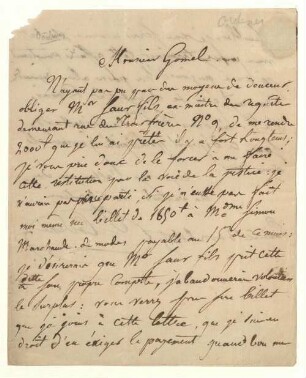 à Monsieur Gomel
N'ayant pas pu par des moyens de douceur
obliger Mr Saur fils ex maître des requêtes
demeurant rue du N° 9 de me rendre
200 que je lui ai prêté il y a fort longtems;
je vous prie donc de le forcer à me faire
cette restitution par la voie de la justice; je
n'aurais pas si je n'eusse pas fait
billet de 1650 à Mme Simon
Marchande de modes payable au 15 de ce mois:
je désirerais que Mr Saur fils prit cette
dette à son propre compte, j'abandonnerai volontiers
le surplus: vous verrez son billet
que je joins à cette lettre, que je suis en
droit d'en exiger le payement quand bon me